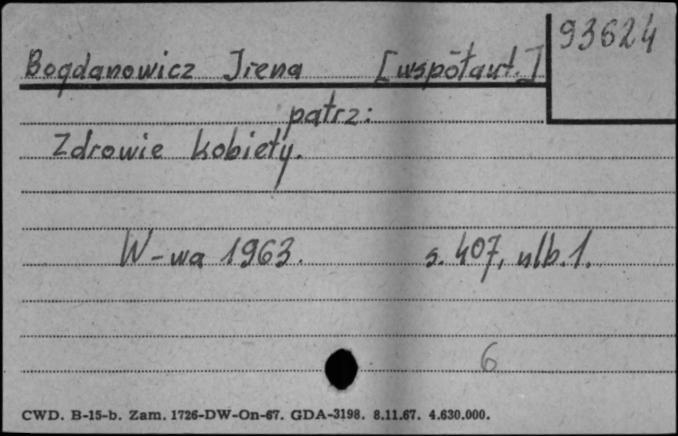 93624
Bogdanowicz Irena [współaut.]
patrz:
Zdrowie kobiety.
W-wa 1963. s. 407, nlb. 1.
6
CWD. B-15-b. Zam. 1726-DW-On-67. GDA-3198. 8.11.67. 4.630.000.